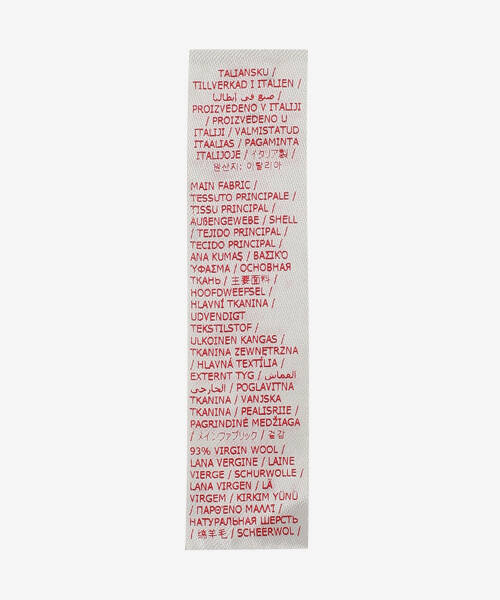 TALIANSKU /
TILLVERKAD I ITALIEN /
صنع في إيطاليا /
PROIZVEDENO V ITALIJI
/ PROIZVEDENO U
ITALIJI / VALMISTATUD
ITAALIAS / PAGAMINTA
ITALIJOJE / イタリア製 /
원산지: 이탈리아
MAIN FABRIC /
TESSUTO PRINCIPALE /
TISSU PRINCIPAL /
AUßENGEWEBE / SHELL
/ TEJIDO PRINCIPAL /
TECIDO PRINCIPAL /
ANA KUMAŞ / ΒΑΣΙΚΌ
ΎΦΑΣΜΑ / ОСНОВНАЯ
ТКАНЬ / 主要面料 /
HOOFDWEEFSEL /
HLAVNÍ TKANINA /
UDVENDIGT
TEKSTILSTOF /
ULKOINEN KANGAS /
TKANINA ZEWNĘTRZNA
/ HLAVNÁ TEXTÍLIA /
EXTERNT TYG / القماش
الخارجي / POGLAVITNA
TKANINA / VANJSKA
TKANINA / PEALISRIIE /
PAGRINDINĖ MEDŽIAGA
/ メインファブリック / 겉감
93% VIRGIN WOOL /
LANA VERGINE / LAINE
VIERGE / SCHURWOLLE /
LANA VIRGEN / LÃ
VIRGEM / KIRKIM YÜNÜ
/ ΠΑΡΘΈΝΟ ΜΑΛΛΊ /
НАТУРАЛЬНАЯ ШЕРСТЬ
/ 绵羊毛 / SCHEERWOL /